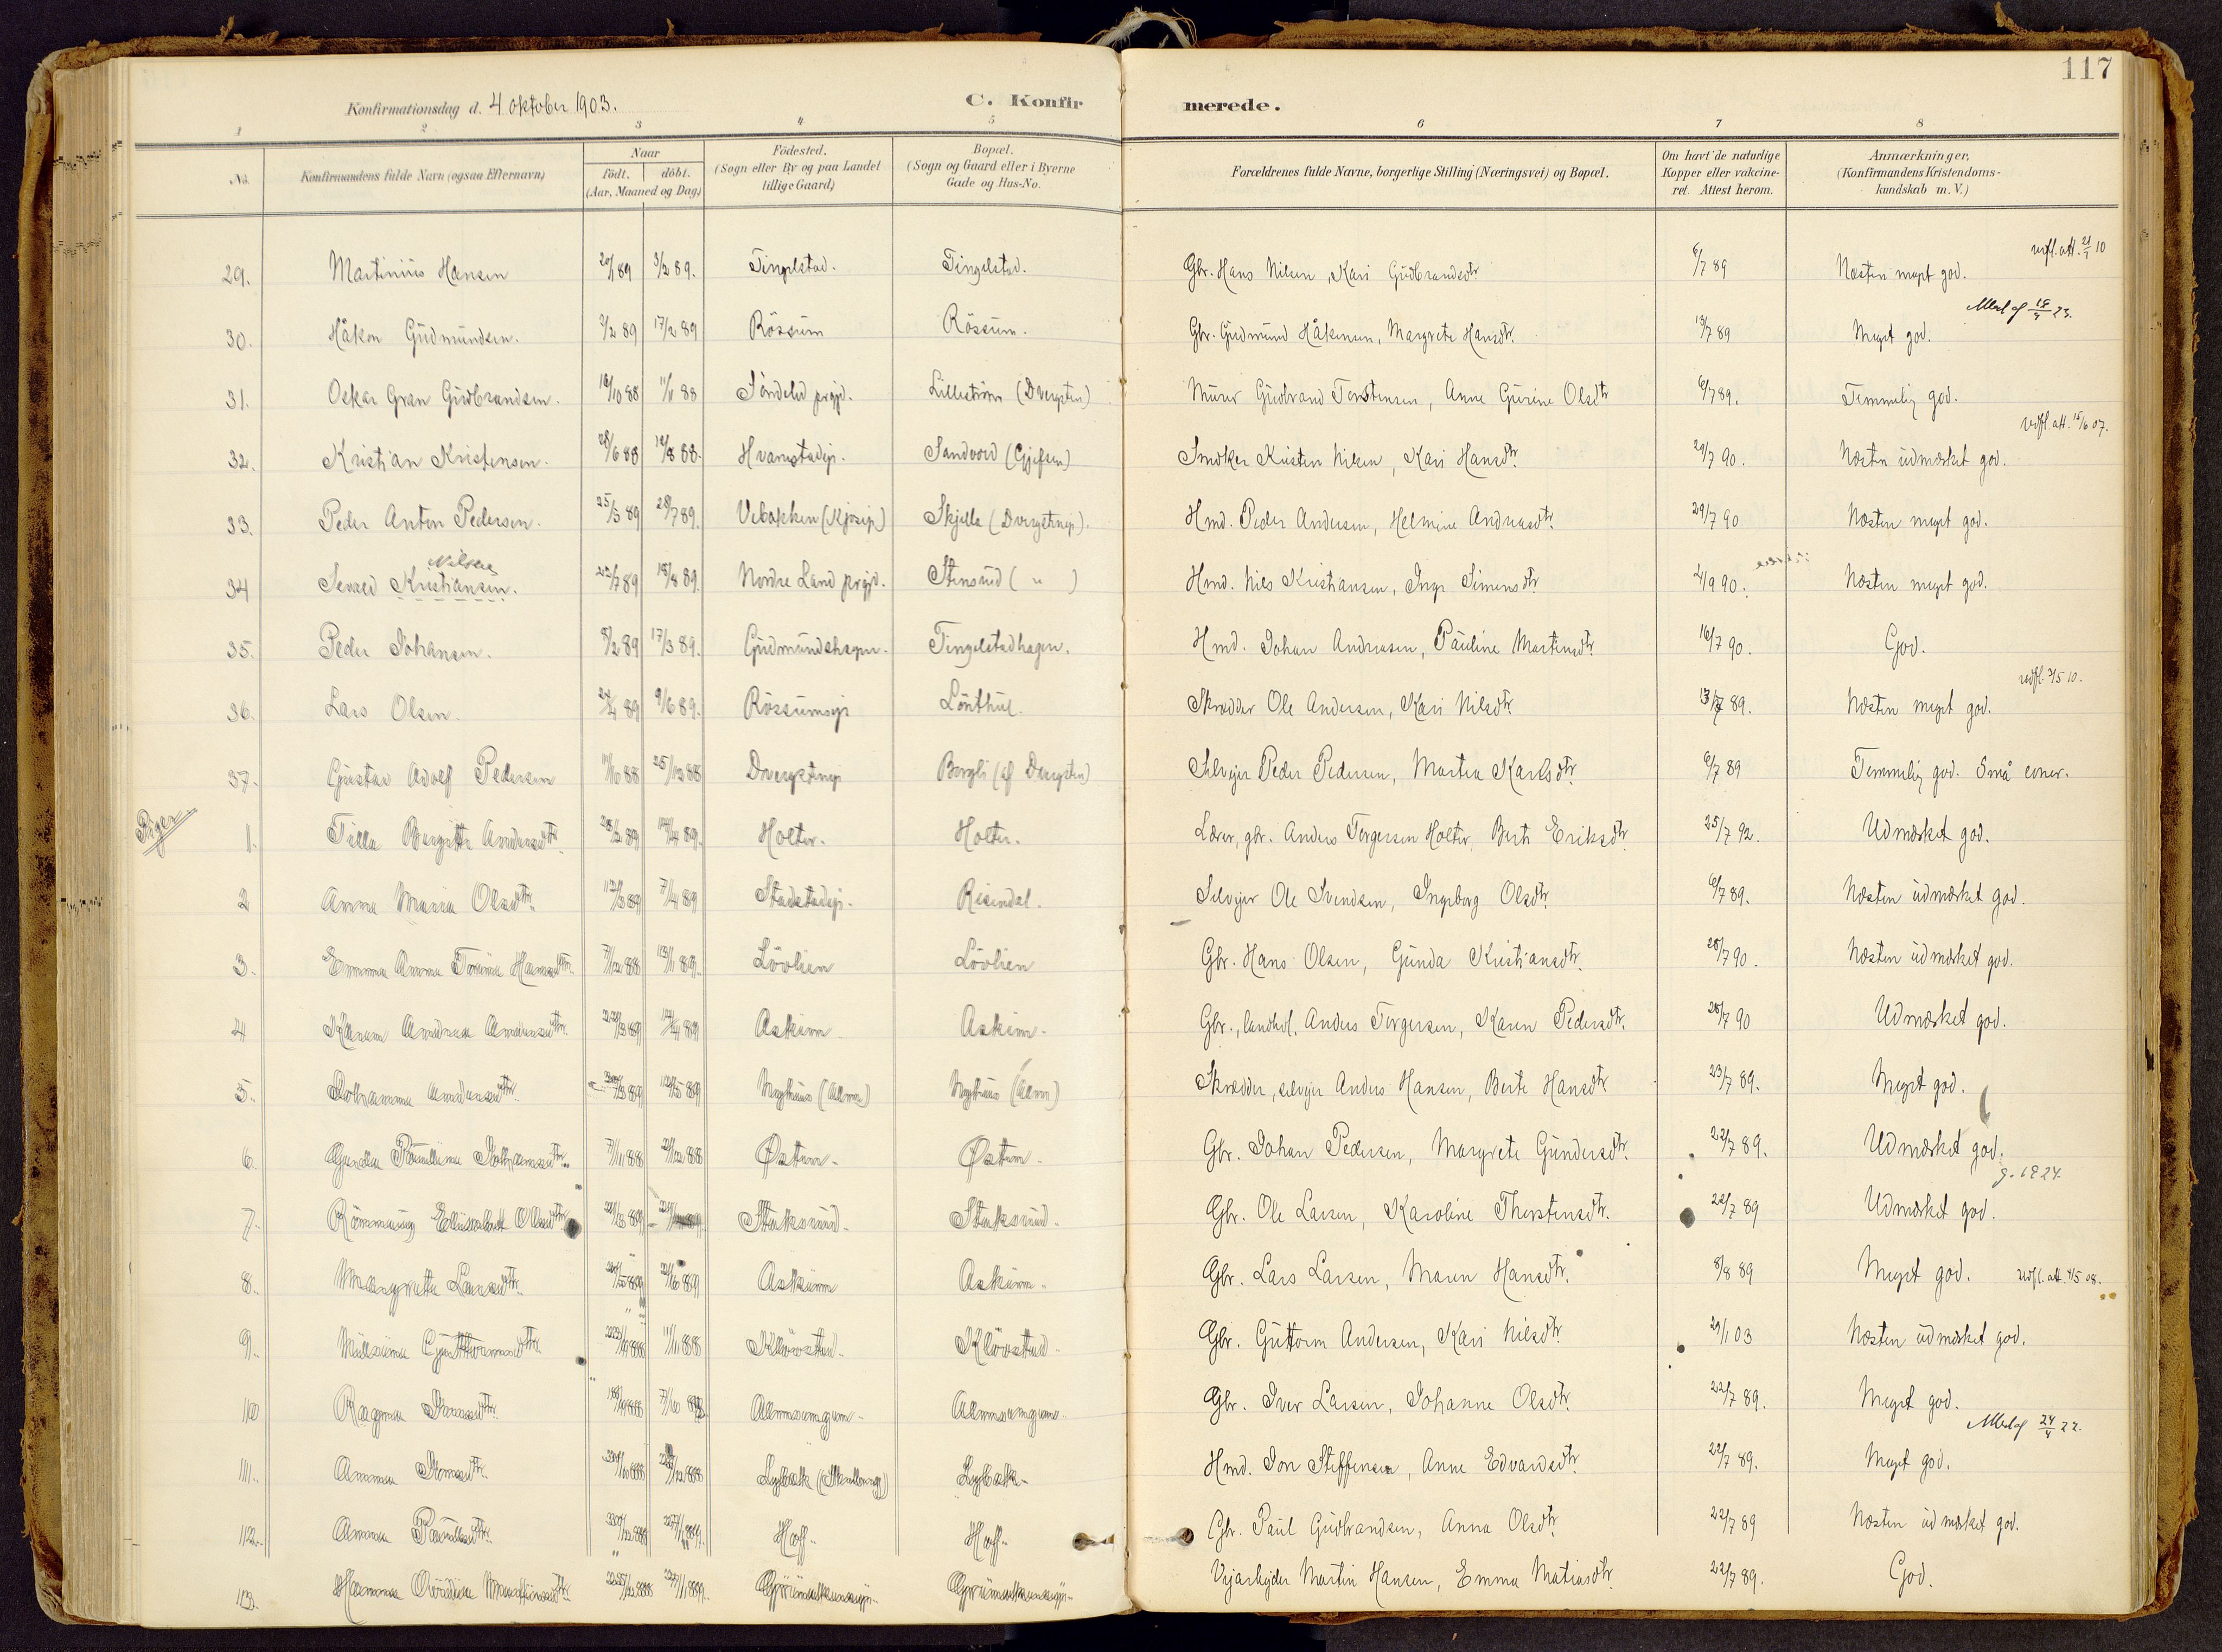 117
Konfirmationsdag d. 4 oktober 1903. C. Konfirmerede.
1 2 3 4 5 6 7 8
No. Konfirmandens fulde Navn (ogsaa Efternavn) Naar födt. döbt. (Aar, Maaned og Dag) Födested. (Sogn eller By og paa Landet tillige Gaard) Bopæl. (Sogn og Gaard eller i Byerne Gade og Hus-No. Forældrenes fulde Navne, borgerlige Stilling (Næringsvei) og Bopæl. Om havt de naturlige Kopper eller vakcineret. Attest herom. Anmærkninger, (Konfirmandens Kristendomskundskab m. V.)
29. Martinius Hansen 20/1 89 3/2 89. Tingelstad. Tingelstad. Gbr. Hans Nilsen, Kari Gudbrandsdtr. 6/7 89 Næsten meget god.
30. Håkon Gudmundsen. 3/2 89 17/2 89 Rössum Rössum. Gbr. Gudmund Håkensen, Margrete Hansdtr. 13/7 89 Meget god.
31. Oskar Gran Gudbrandsen. 16/10 88 11/11 88 Söndeled prgjd. Lilleström (Dvergsten) Murer Gudbrand Torstensen, Anne Gurine Olsdtr 6/7 89. Temmelig god.
udfl. att. 15/6 07.
32. Kristian Kristensen. 28/6 88 12/8 88. Hvamstadejr. Sandvord (Gjefsen) Snedker Kristen Nilsen, Kari Hansdtr. 29/7 90. Næsten udmærket god.
33. Peder Anton Pedersen. 25/5 89 28/7 89. Vebakken (Kjosejr) Skjella (Dvergstenejr). Hmd. Peder Andersen, Helmine Andreasdtr. 29/7 90 Næsten meget god.
34 Senald Kristiansen. Nilsen 23/7 89 18/8 89. Nordre Land prgjd. Stensrud ( " ) Hmd. Nils Kristiansen, Inger Simensdtr 4/9 90. Næsten meget god.
35. Peder Johansen. 8/2 89 17/3 89. Gudmundshagen. Tingelstadhagen. Hmd. Johan Andreasen, Pauline Martinsdtr. 16/7 90. God.
36. Lars Olsen. 24/4 89 9/6 89. Rössumsejr Lönthul. Skrædder Ole Andersen, Kari Nilsdtr. 13/7 89. Næsten meget god.
37. Gustav Adolf Pedersen 11/10 88 25/12 88 Dvergstenejr Borgli (af Dvergsten) Selvejer Peder Pedersen, Martea Karlsdtr. 6/7 89 Temmelig god. Små evner.
Piger
1. Tilla Bergitte Andersdtr. 28/2 89 14/4 89. Holter. Holter. Lærer, gbr. Anders Torgersen Holter, Berte Eriksdtr. 25/7 92. Udmærket god.
2 Anna Maria Olsdtr. 12/3 89 7/4 89 Stadstadejr. Risendal. Selvejer Ole Svendsen, Ingeborg Olsdtr. 6/7 89. Næsten udmærket god.
3. Emma Anne Tomine Hansdtr. 7/12 88 13/1 89. Lövlien Lövlien Gbr. Hans Olsen, Gunda Kristiansdtr. 28/7 90. Næsten udmærket god.
4 Karen Andrea Andersdtr. 22/3 89 14/4 89 Askim Askim. Gbr., landhdl. Anders Torgersen, Karen Pedersdtr. 28/7 90 Udmærket god.
5. Johanna Andersdtr. 12/5 89 Nyhus (Almen) Nyhus (Almen) Skrædder, selvejer Anders Hansen, Berte Hansdtr. 23/7 89. Meget god.
6. Paulina Johansdtr. 7/11 88 Østen. Østen. Gbr. Johan Pedersen, Margrete Gundersdtr. 22/7 89. Udmærket god.
g. 1924.
7. Rönnaug Elisabet Olsdtr Staksrud. Staksrud. Gbr. Ole Larsen, Karoline Thorstensdtr. 22/7 89 Udmærket god.
8. Margrete Larsdtr. Askim Askim. Gbr. Lars Larsen, Maren Hansdtr. 8/8 89 Meget god.
9. Guttormsdtr 11/11 88 Klövstad. Klövstad. Gbr. Guttorm Andersen, Kari Nilsdtr. 29/1 03 Næsten udmærket god.
10 Ragna Iversdtr. Gbr. Iver Larsen, Johanne Olsdtr. 22/7 89. Meget god.
11. Anna Jonsdtr. Lybæk Lybæk. Hmd. Jon Steffensen, Anne Edvardsdtr. 22/7 89. Meget god.
12. Anna Paulsdtr. Hoff. Hoff. Gbr. Paul Gudbrandsen, Anna Olsdtr. 22/7 89 Næsten udmærket god.
13. Hanna Martinsdtr. Vejarbejder Martin Hansen, Emma Matiasdtr. 22/7 89. God.